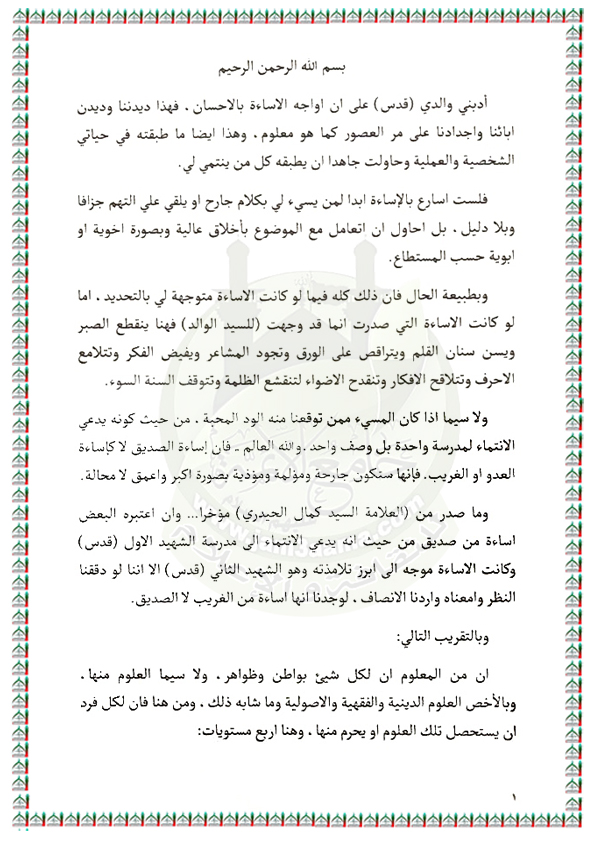 بسم الله الرحمن الرحيم
أدبني والدي (قدس) على ان اواجه الاساءة بالاحسان ، فهذا ديدننا وديدن
ابائنا واجدادنا على مر العصور كما هو معلوم ، وهذا ايضا ما طبقته في حياتي
الشخصية والعملية وحاولت جاهدا ان يطبقه كل من ينتمي لي.
فلست اسارع بالإساءة ابدا لمن يسيء لي بكلام جارح او يلقي علي التهم جزافا
وبلا دليل ، بل احاول ان اتعامل مع الموضوع بأخلاق عالية وبصورة اخوية او
ابوية حسب المستطاع.
وبطبيعة الحال فان ذلك كله فيما لو كانت الاساءة متوجهة لي بالتحديد ، اما
لو كانت الاساءة التي صدرت انما قد وجهت (للسيد الوالد) فهنا ينقطع الصبر
ويسن سنان القلم ويتراقص على الورق وتجود المشاعر ويفيض الفكر وتتلامع
الاحرف وتتلاقح الافكار وتنقدح الاضواء لتنقشع الظلمة وتتوقف السنة السوء.
ولا سيما اذا كان المسيء ممن توقعنا منه الود المحبة ، من حيث كونه يدعي
الانتماء لمدرسة واحدة بل وصف واحد .والله العالم .. فان إساءة الصديق لا كإساءة
العدو او الغريب. فإنها ستكون جارحة ومؤلمة ومؤذية بصورة اكبر واعمق لا محالة.
وما صدر من (العلامة السيد كمال الحيدري) مؤخرا... وان اعتبره البعض
اساءة من صديق من حيث انه يدعي الانتماء الى مدرسة الشهيد الاول (قدس)
وكانت الاساءة موجه الى ابرز تلامذته وهو الشهيد الثاني (قدس) الا اننا لو دققنا
النظر وامعناه واردنا الانصاف ، لوجدنا انها اساءة من الغريب لا الصديق.
وبالتقريب التالي:
ان من المعلوم ان لكل شيئ بواطن وظواهر ، ولا سيما العلوم منها ،
وبالأخص العلوم الدينية والفقهية والاصولية وما شابه ذلك ، ومن هنا فان لكل فرد
ان يستحصل تلك العلوم او يحرم منها ، وهنا اربع مستويات:
١